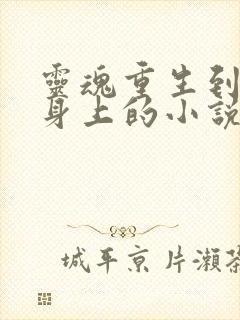 靈魂重生到
身上的小說
城平京 片瀨